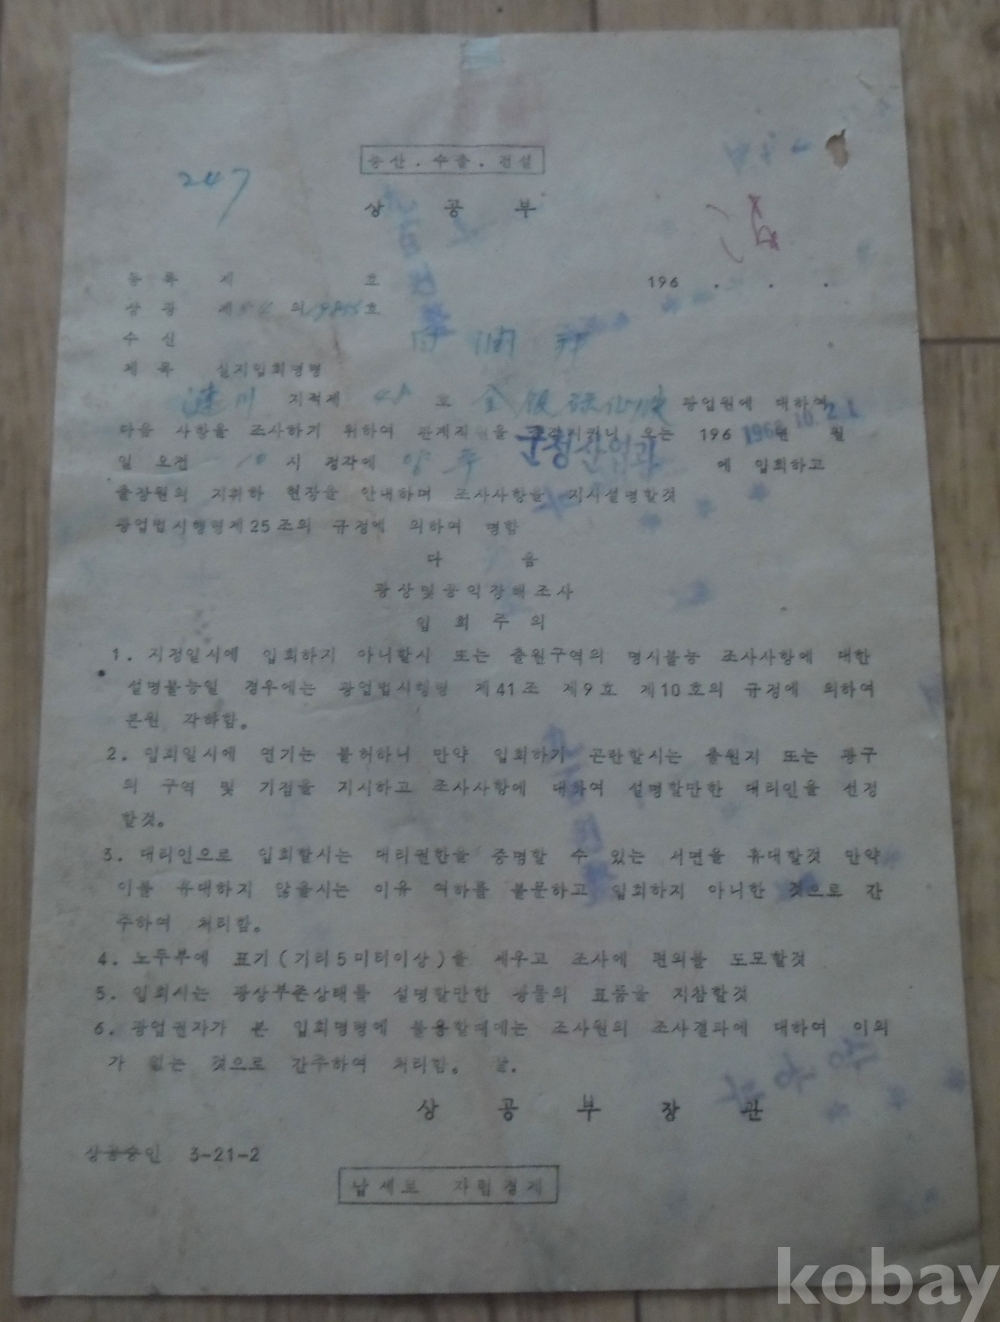 증산.수출.건설
247
상 공 부
등 록 제 호
196 . . .
상 광 제 의 호
수 신
제 목 실지입회명령
漣川 지적제 호 광업원에 대하여
다음 사항을 조사하기 위하여 관계직원을 오는 196 1966 10. 21 월
일 오전 10 시 정각에 양주 군청산업과 에 입회하고
출장원의 지휘하 현장을 안내하며 조사사항을 지시설명할것
광업법시행령제25조의 규정에 의하여 명함
다 음
광상및공익장해조사
입 회 주 의
1. 지정일시에 입회하지 아니할시 또는 출원구역의 명시불능 조사사항에 대한
설명불능일 경우에는 광업법시행령 제41조 제9호 제10호의 규정에 의하여
본원 각하함。
2. 입회일시에 연기는 불허하니 만약 입회하기 곤란할시는 출원지 또는 광구
의 구역 및 기점을 지시하고 조사사항에 대하여 설명할만한 대리인을 선정
할것。
3. 대리인으로 입회할시는 대리권한을 증명할 수 있는 서면을 휴대할것 만약
이를 휴대하지 않을시는 이유 여하를 불문하고 입회하지 아니한 것으로 간
주하여 처리함。
4. 노두부에 표기(기리5미터이상)을 세우고 조사에 편의를 도모할것
5. 입회시는 광상부존상태를 설명할만한 광물의 표품을 지참할것
6. 광업권자가 본 입회명령에 불응할때에는 조사원의 조사결과에 대하여 이의
가 없는 것으로 간주하여 처리함。 끝.
상 공 부 장 관
상공승인 3-21-2
납세로 자립경제
kobay